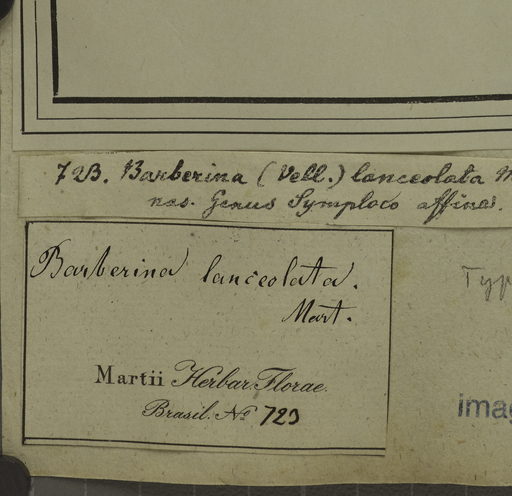 723. Barberina (Vell.) lanceolata M
nos. Genus Symploco affine.
Barberina lanceolata.
Mart.
Typ
Martii Herbar. Florae
Brasil. No 723
imag